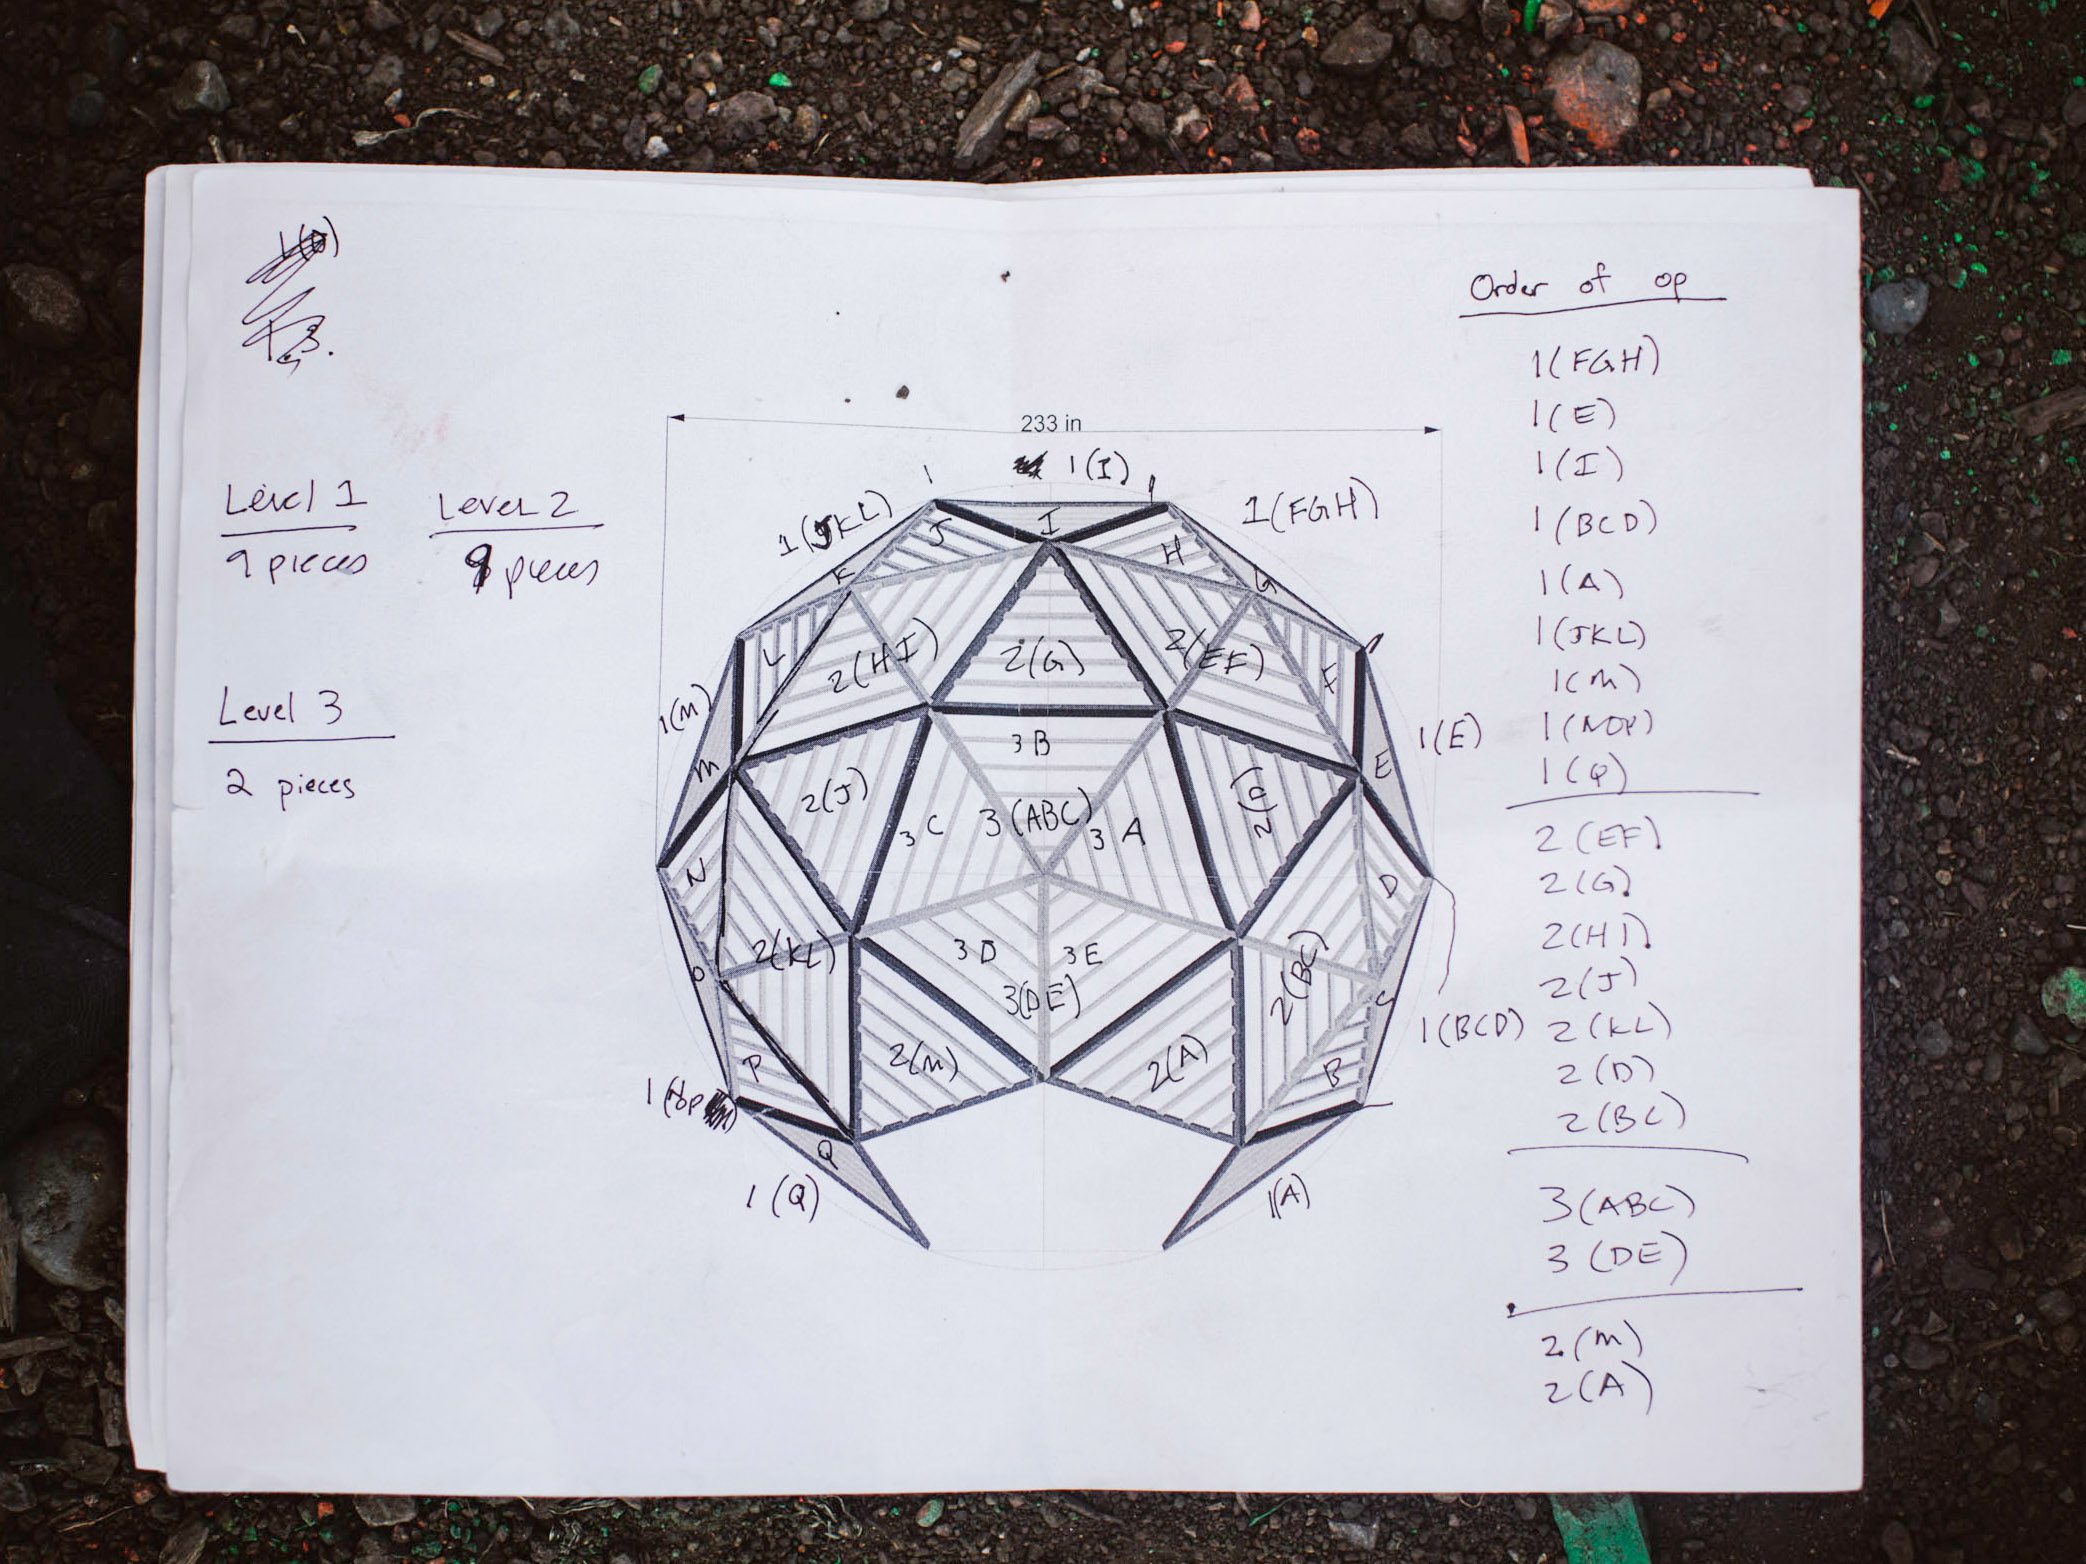 Level 1
9 pieces
Level 2
9 pieces
Level 3
2 pieces
233 in
1(I)
1(JKL)
1(FGH)
J
I
H
K
G
L
2(HI)
2(G)
2(EF)
F
1(M)
M
3B
E
1(E)
2(J)
3C
3(ABC)
3A
2(D)
N
D
O
2(KL)
3D
3E
3(DE)
2(BC)
C
1(BCD)
P
2(M)
2(A)
B
1(NOP
Q
1(Q)
1(A)
Order of op
1(FGH)
1(E)
1(I)
1(BCD)
1(A)
1(JKL)
1(M)
1(NOP)
1(Q)
2(EF)
2(G)
2(HI)
2(J)
2(KL)
2(D)
2(BC)
3(ABC)
3(DE)
2(M)
2(A)